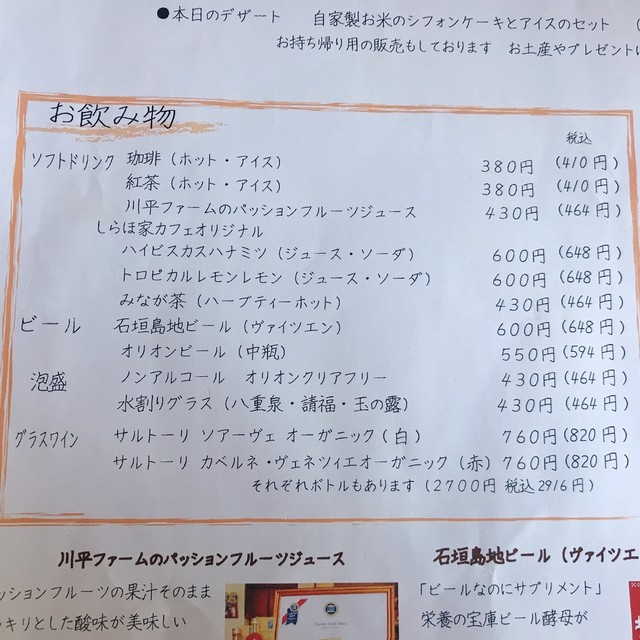 ●本日のデザート　自家製お米のシフォンケーキとアイスのセット　(
お持ち帰り用の販売もしております　お土産やプレゼントに
お飲み物
税込
ソフトドリンク　珈琲（ホット・アイス）　380円　(410円)
紅茶（ホット・アイス）　380円　(410円)
川平ファームのパッションフルーツジュース　430円　(464円)
しらほ家カフェオリジナル
ハイビスカスハナミツ（ジュース・ソーダ）　600円　(648円)
トロピカルレモンレモン（ジュース・ソーダ）　600円　(648円)
みなが茶（ハーブティーホット）　430円　(464円)
ビール　石垣島地ビール（ヴァイツエン）　600円　(648円)
オリオンビール（中瓶）　550円　(594円)
泡盛　ノンアルコール　オリオンクリアフリー　430円　(464円)
水割りグラス（八重泉・請福・玉の露）　430円　(464円)
グラスワイン　サルトーリ ソアーヴェ オーガニック(白)　760円　(820円)
サルトーリ カベルネ・ヴェネツィエオーガニック（赤）760円　(820円)
それぞれボトルもあります（2700円 税込2916円）
川平ファームのパッションフルーツジュース　石垣島地ビール（ヴァイツエ
ッションフルーツの果汁そのまま　「ビールなのにサプリメント」
ッキリとした酸味が美味しい　栄養の宝庫ビール酵母が